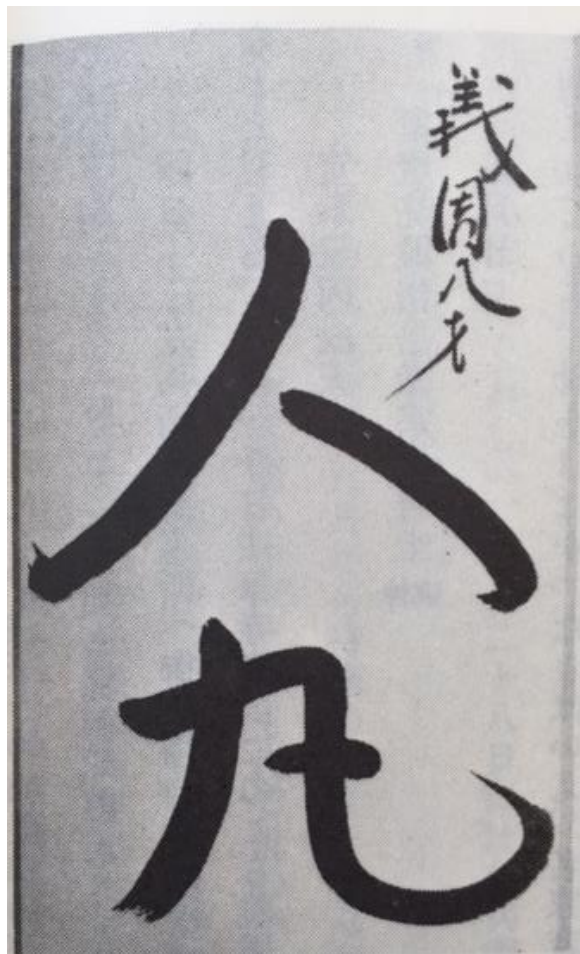 義周八才
人丸